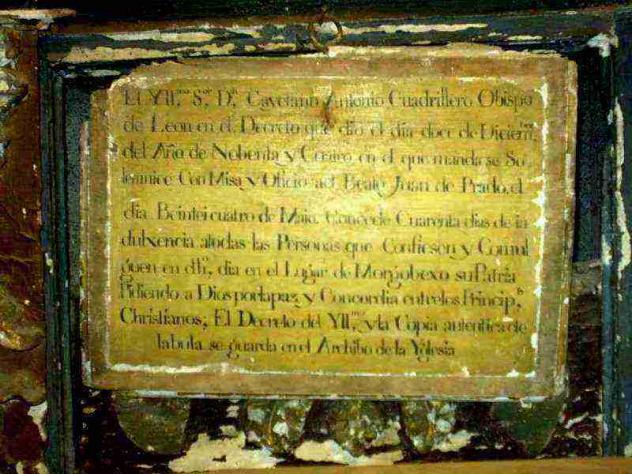 El Yll.mo S.or D.n Cayetano Antonio Cuadrillero Obispo
de Leon en el Decreto que dio el dia doce de Diciem.e
del Año de Nobenta y Cuatro en el que manda se So
lemnice Con Misa y Oficio al Beato Juan de Prado, el
dia Beinteicuatro de Maio. Concede Cuarenta dias de in
dulxencia atodas las Personas que Confiesen y Comul
guen en dho, dia en el Lugar de Morgobexo su Patria
Pidiendo a Dios por la paz y Concordia entre los Princip.s
Christianos; El Decreto del Yll.mo y la Copia autentica de
la bula se guarda en el Archibo de la Yglesia